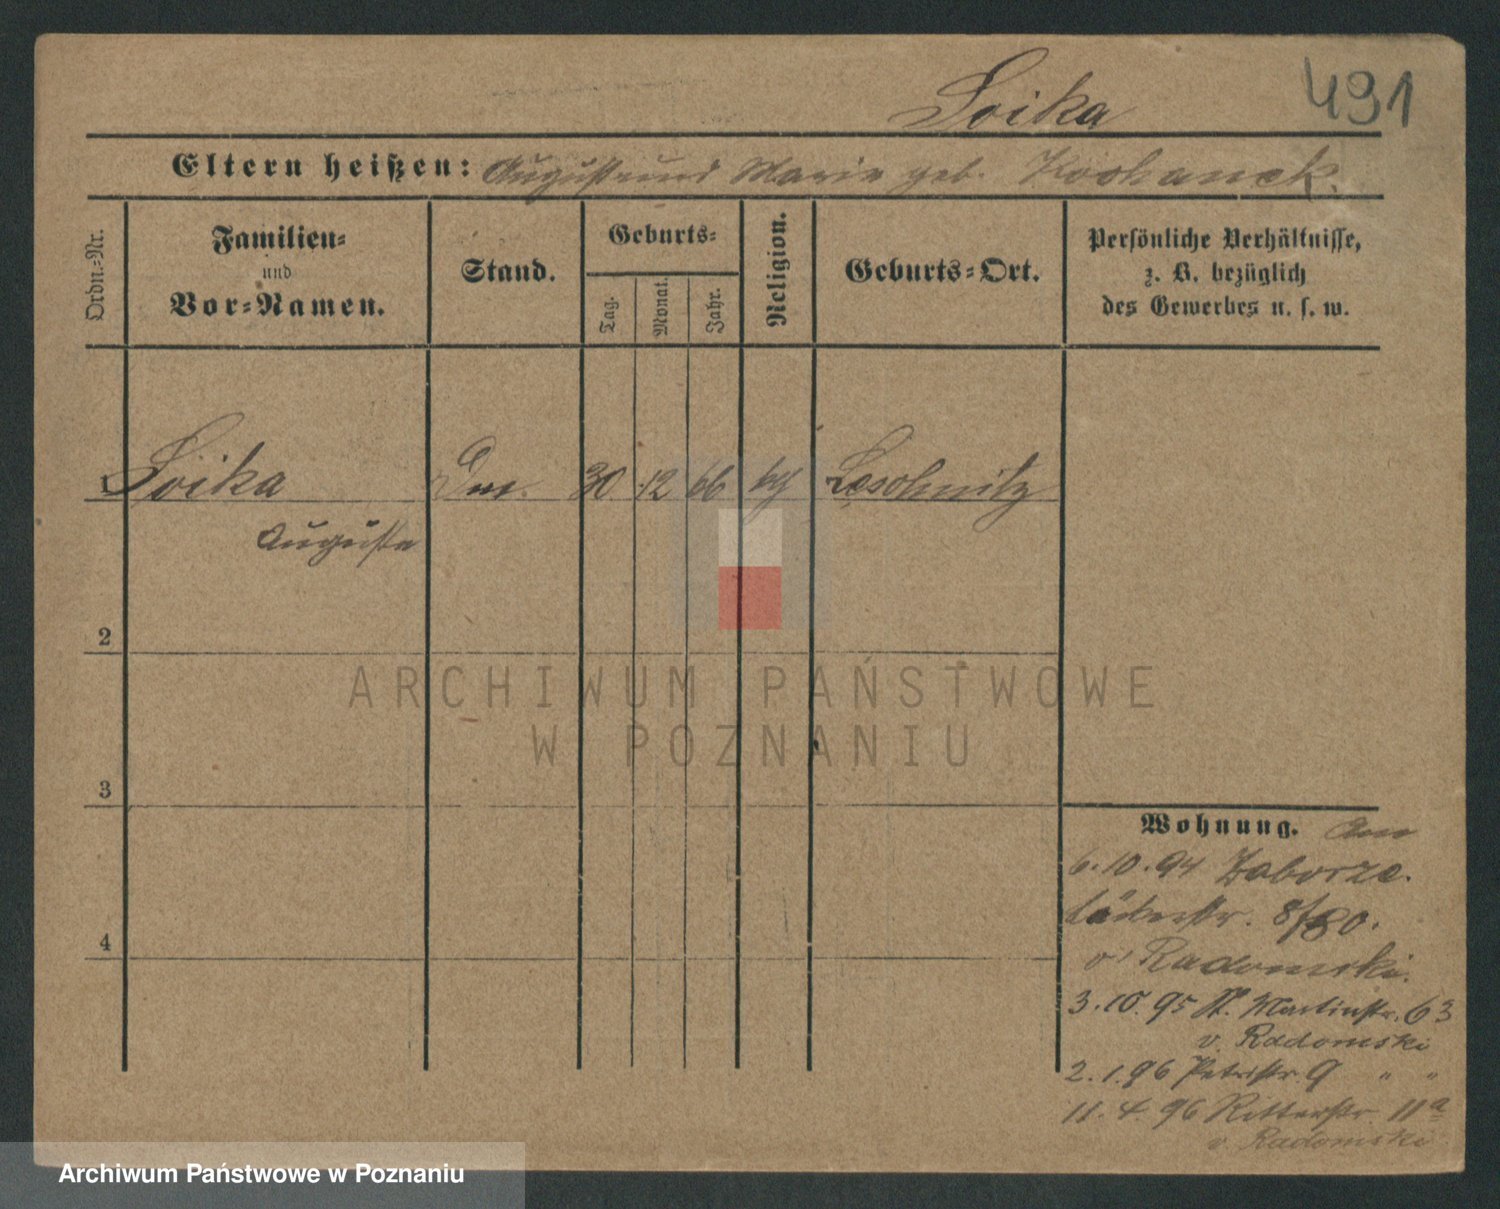 Soika
491
Eltern heißen: August und Marie geb. Kochanek.
Ordn.-Nr.
Familien-
und
Vor-Namen.
Stand.
Geburts-
Tag.
Monat.
Jahr.
Religion.
Geburts-Ort.
Persönliche Verhältnisse,
z. B. bezüglich
des Gewerbes u. s. w.
1 Soika 30 12 66 Leschnitz
Auguste
2
3
4
Wohnung.
6.10.94 Zaborze.
8/80.
v. Radomski.
3.10.95 St. Martinstr. 63
v. Radomski
2.1.96 Petristr. 9 " "
11.4.96 Ritterstr. 11a
v. Radomski
ARCHIWUM PAŃSTWOWE
W POZNANIU
Archiwum Państwowe w Poznaniu